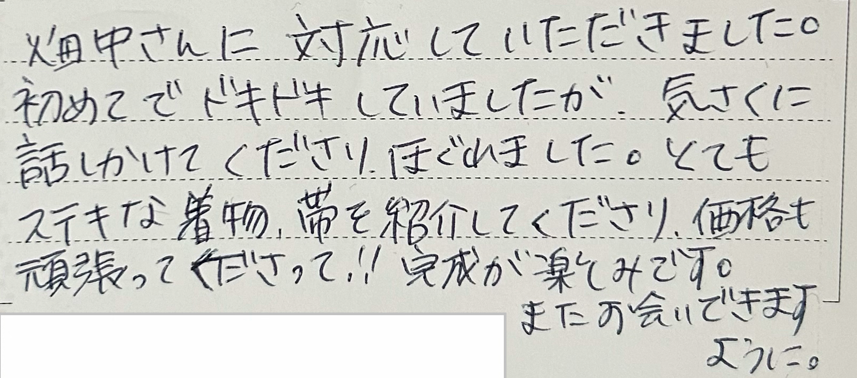 畑中さんに 対応していただきました。
初めてでドキドキしていましたが、気さくに
話しかけてくださり、ほぐれました。とても
ステキな着物、帯を紹介してくださり、価格も
頑張ってくださって!! 完成が楽しみです。
またお会いできます
ように。